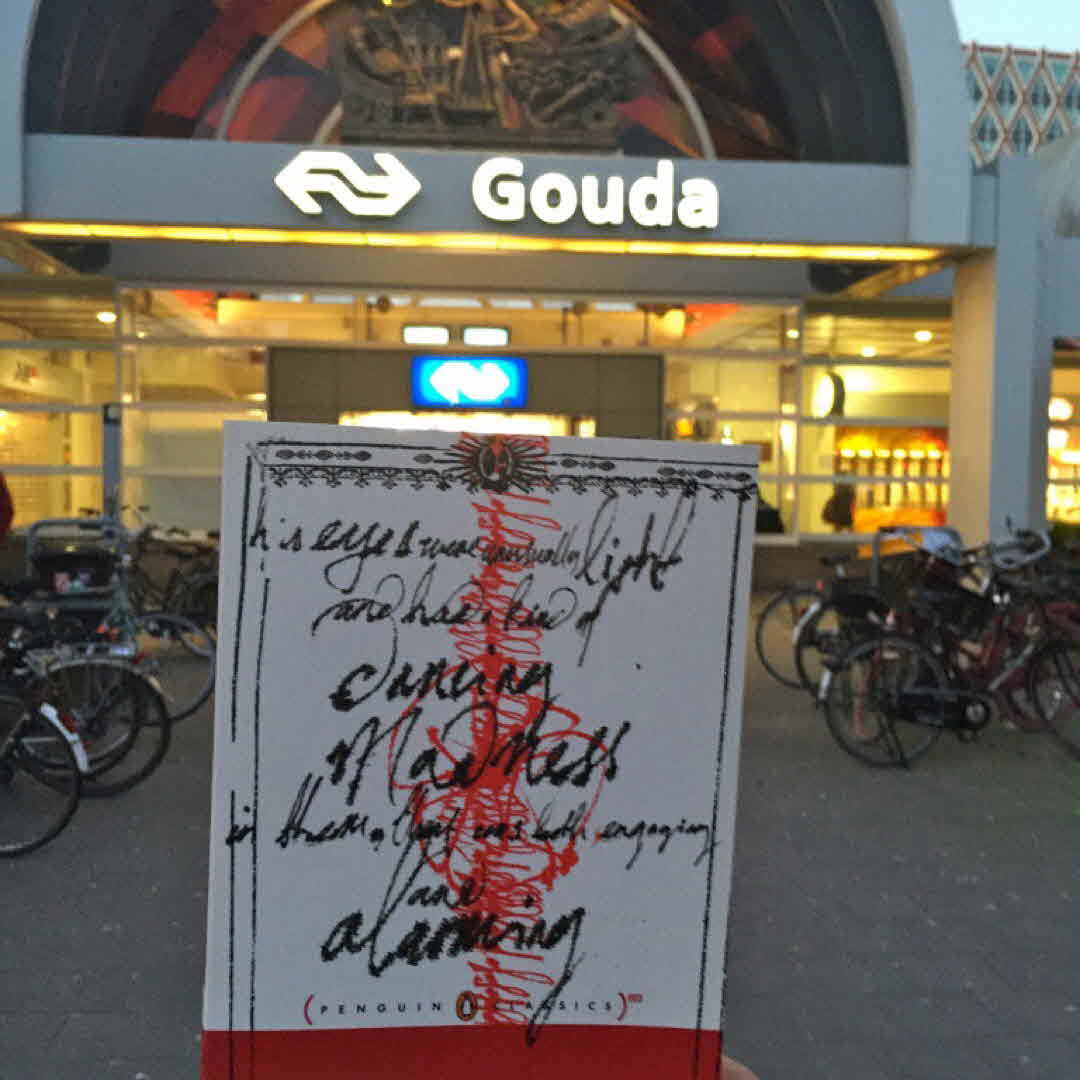 Gouda
his eyes were unusually light
and had a kind of
dancing
Madness
in them, that was both engaging
and
alarming
(PENGUIN CLASSICS)